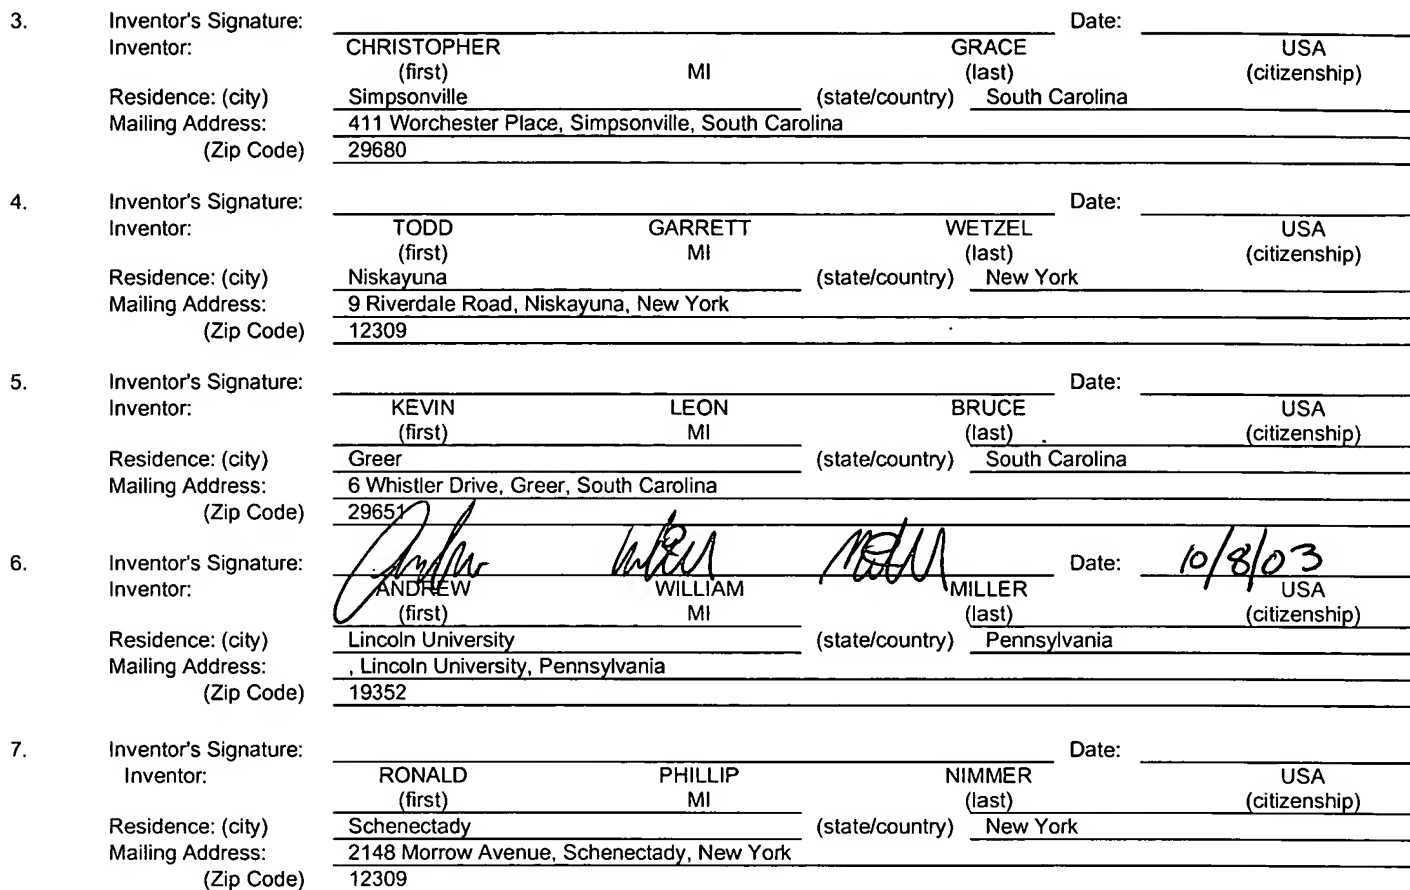 3. Inventor's Signature: Date:
Inventor: CHRISTOPHER GRACE USA
(first) MI (last) (citizenship)
Residence: (city) Simpsonville (state/country) South Carolina
Mailing Address: 411 Worchester Place, Simpsonville, South Carolina
(Zip Code) 29680
4. Inventor's Signature: Date:
Inventor: TODD GARRETT WETZEL USA
(first) MI (last) (citizenship)
Residence: (city) Niskayuna (state/country) New York
Mailing Address: 9 Riverdale Road, Niskayuna, New York
(Zip Code) 12309
5. Inventor's Signature: Date:
Inventor: KEVIN LEON BRUCE USA
(first) MI (last) (citizenship)
Residence: (city) Greer (state/country) South Carolina
Mailing Address: 6 Whistler Drive, Greer, South Carolina
(Zip Code) 29651
6. Inventor's Signature: Date: 10/8/03
Inventor: ANDREW WILLIAM MILLER USA
(first) MI (last) (citizenship)
Residence: (city) Lincoln University (state/country) Pennsylvania
Mailing Address: , Lincoln University, Pennsylvania
(Zip Code) 19352
7. Inventor's Signature: Date:
Inventor: RONALD PHILLIP NIMMER USA
(first) MI (last) (citizenship)
Residence: (city) Schenectady (state/country) New York
Mailing Address: 2148 Morrow Avenue, Schenectady, New York
(Zip Code) 12309